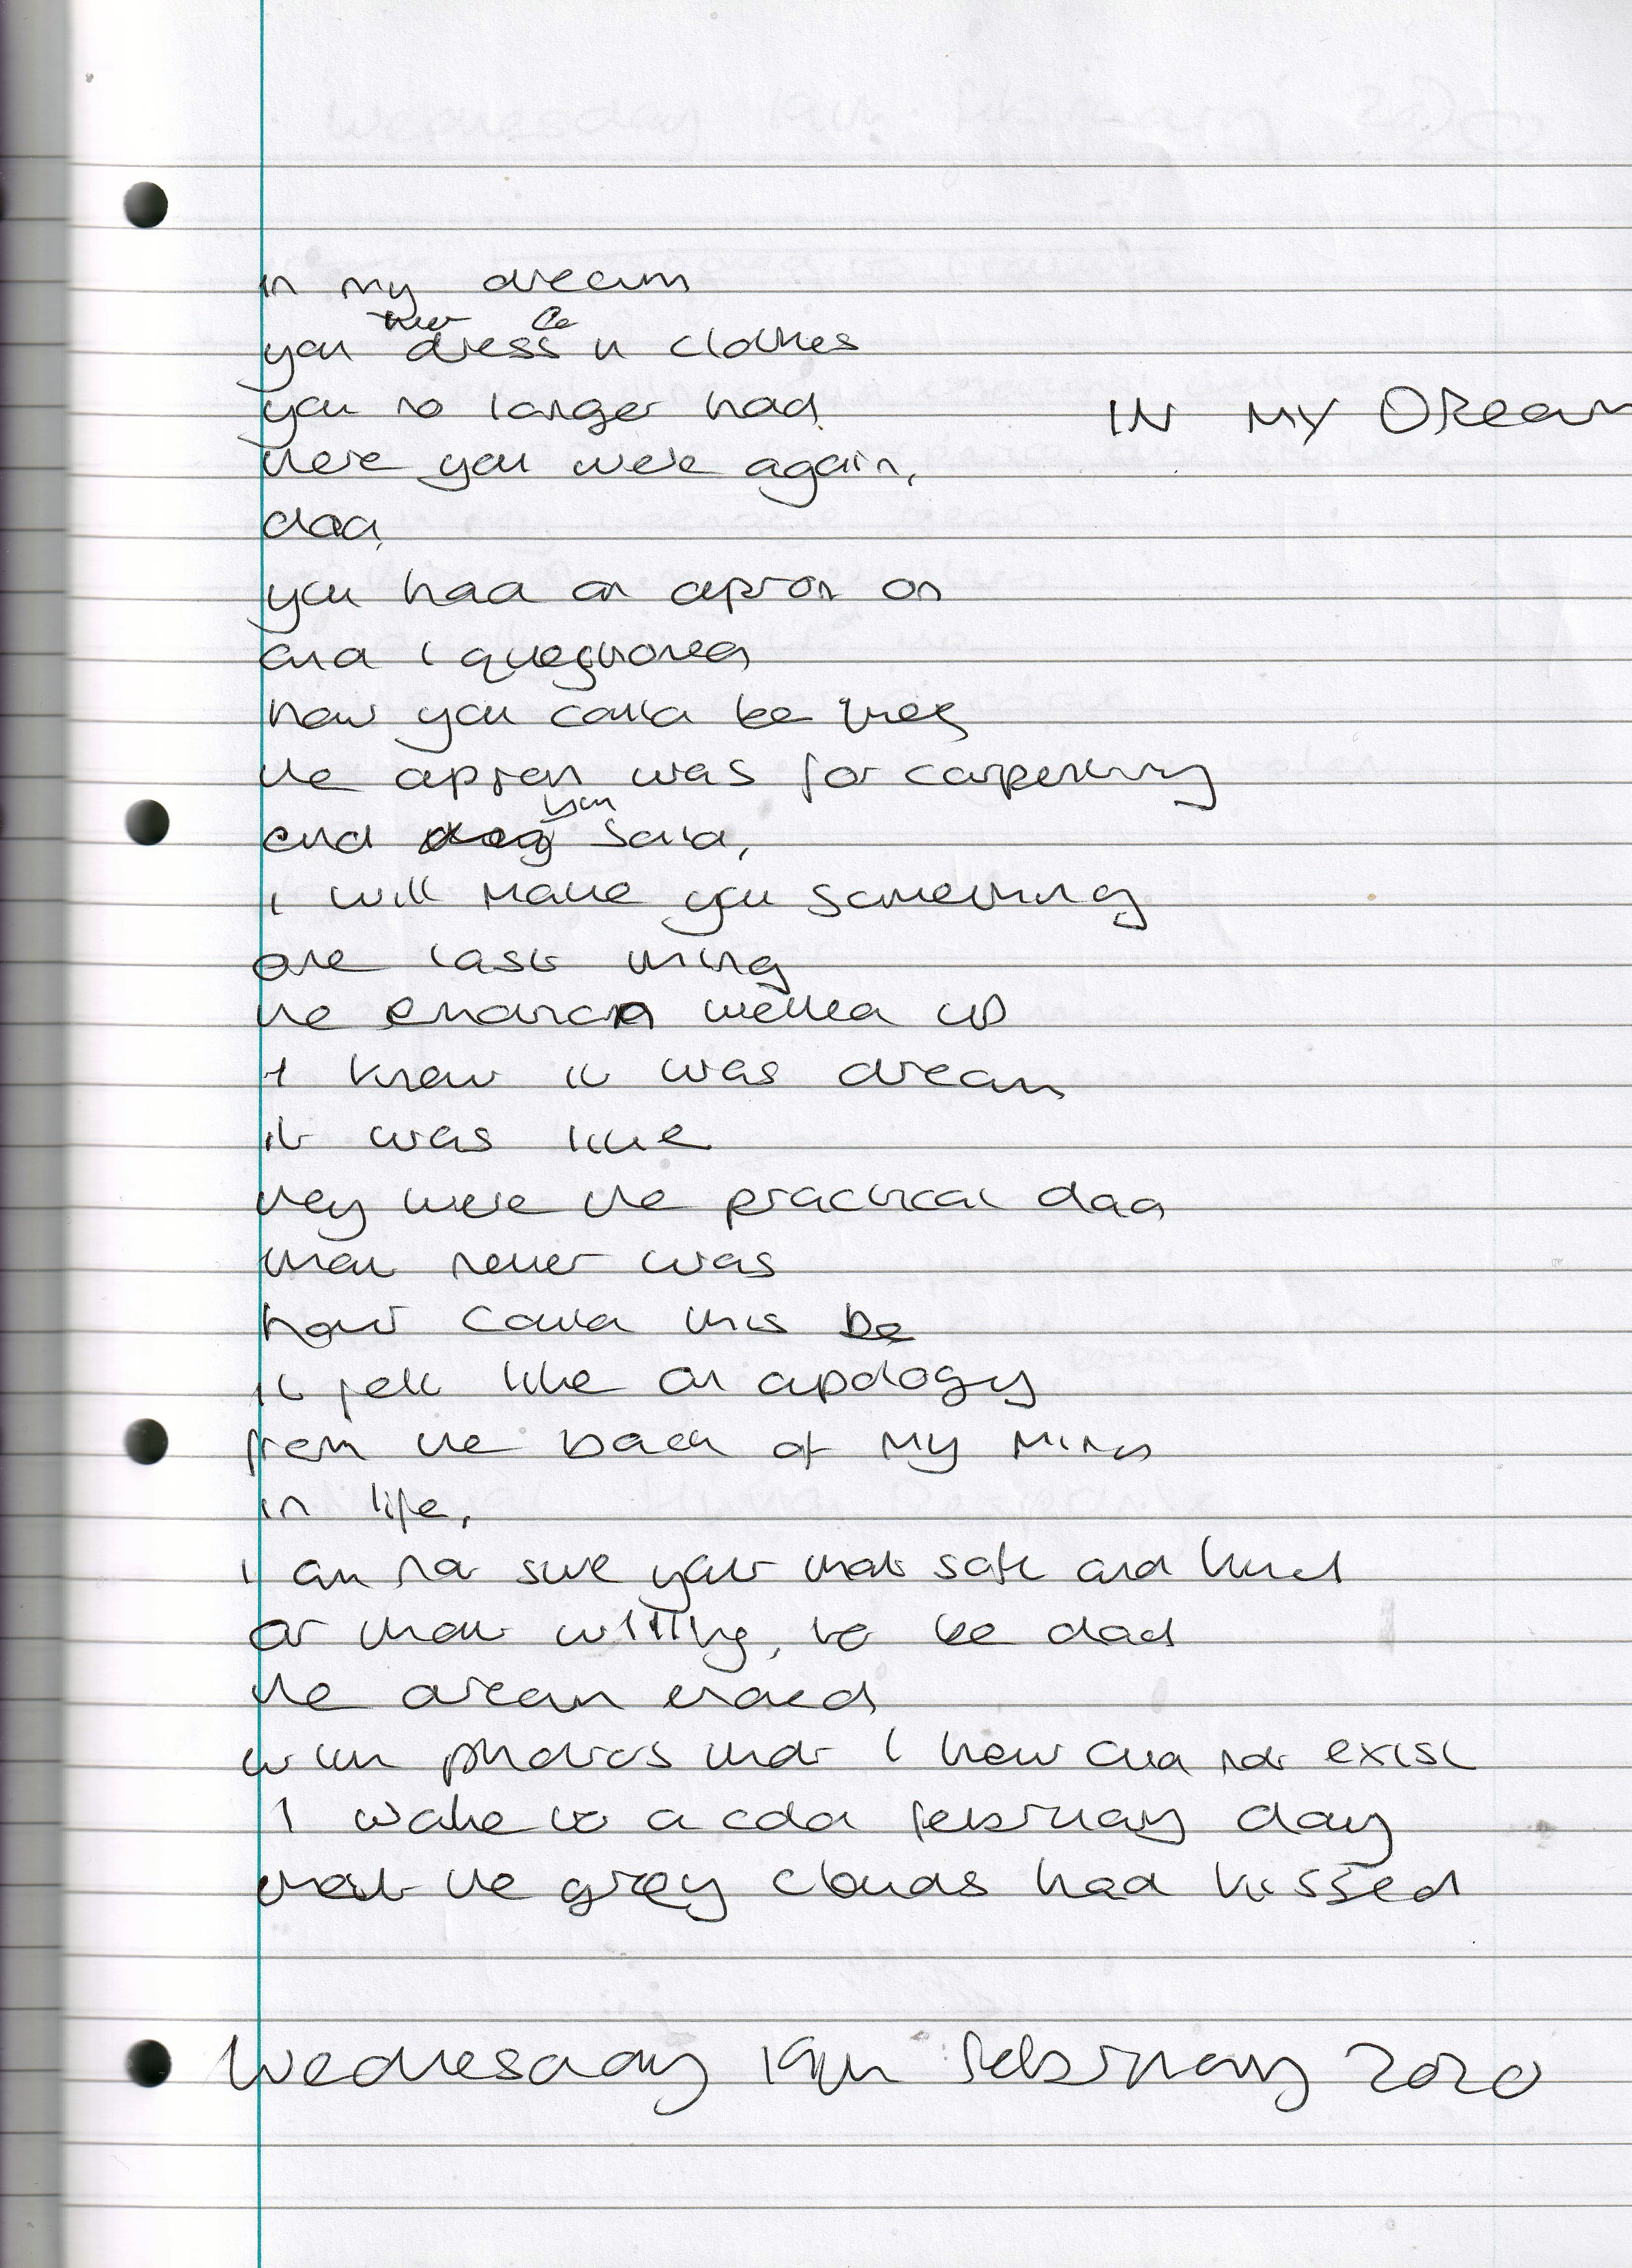 in my dream
you were dressed in clothes
you no longer had
IN MY DREAM
there you were again,
dad,
you had an apron on
and i questioned
how you could be
the apron was for carpentry
and you said,
i will make you something
one last thing
the emotion welled up
I knew it was dream
it was like
they were the practical dad
that never was
how could this be
it felt like an apology
from the back of my mind
in life,
i am not sure your that safe and kind
or that willing, to be dad
the dream ended
with photos that I knew did not exist
I wake to a cold february day
that the grey clouds had kissed
Wednesday 19th february 2020